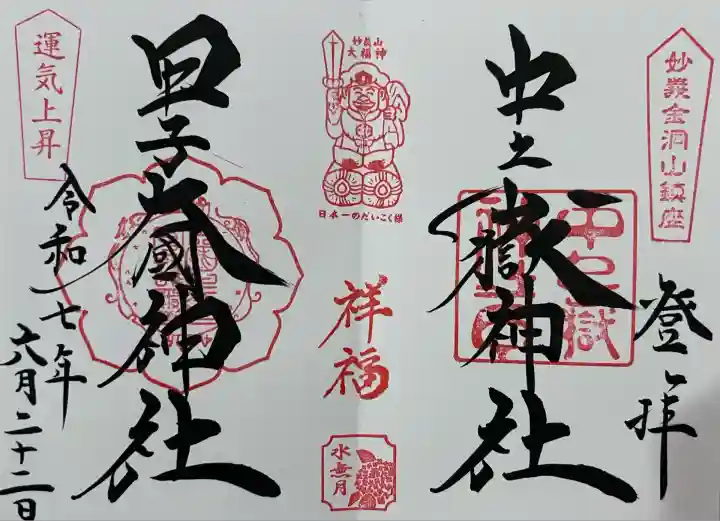 妙義金洞山鎮座
登拝
中之嶽神社
中之嶽
妙義山
大福神
日本一のだいこく様
祥福
水無月
甲子大國神社
運気上昇
令和七年
六月二十二日